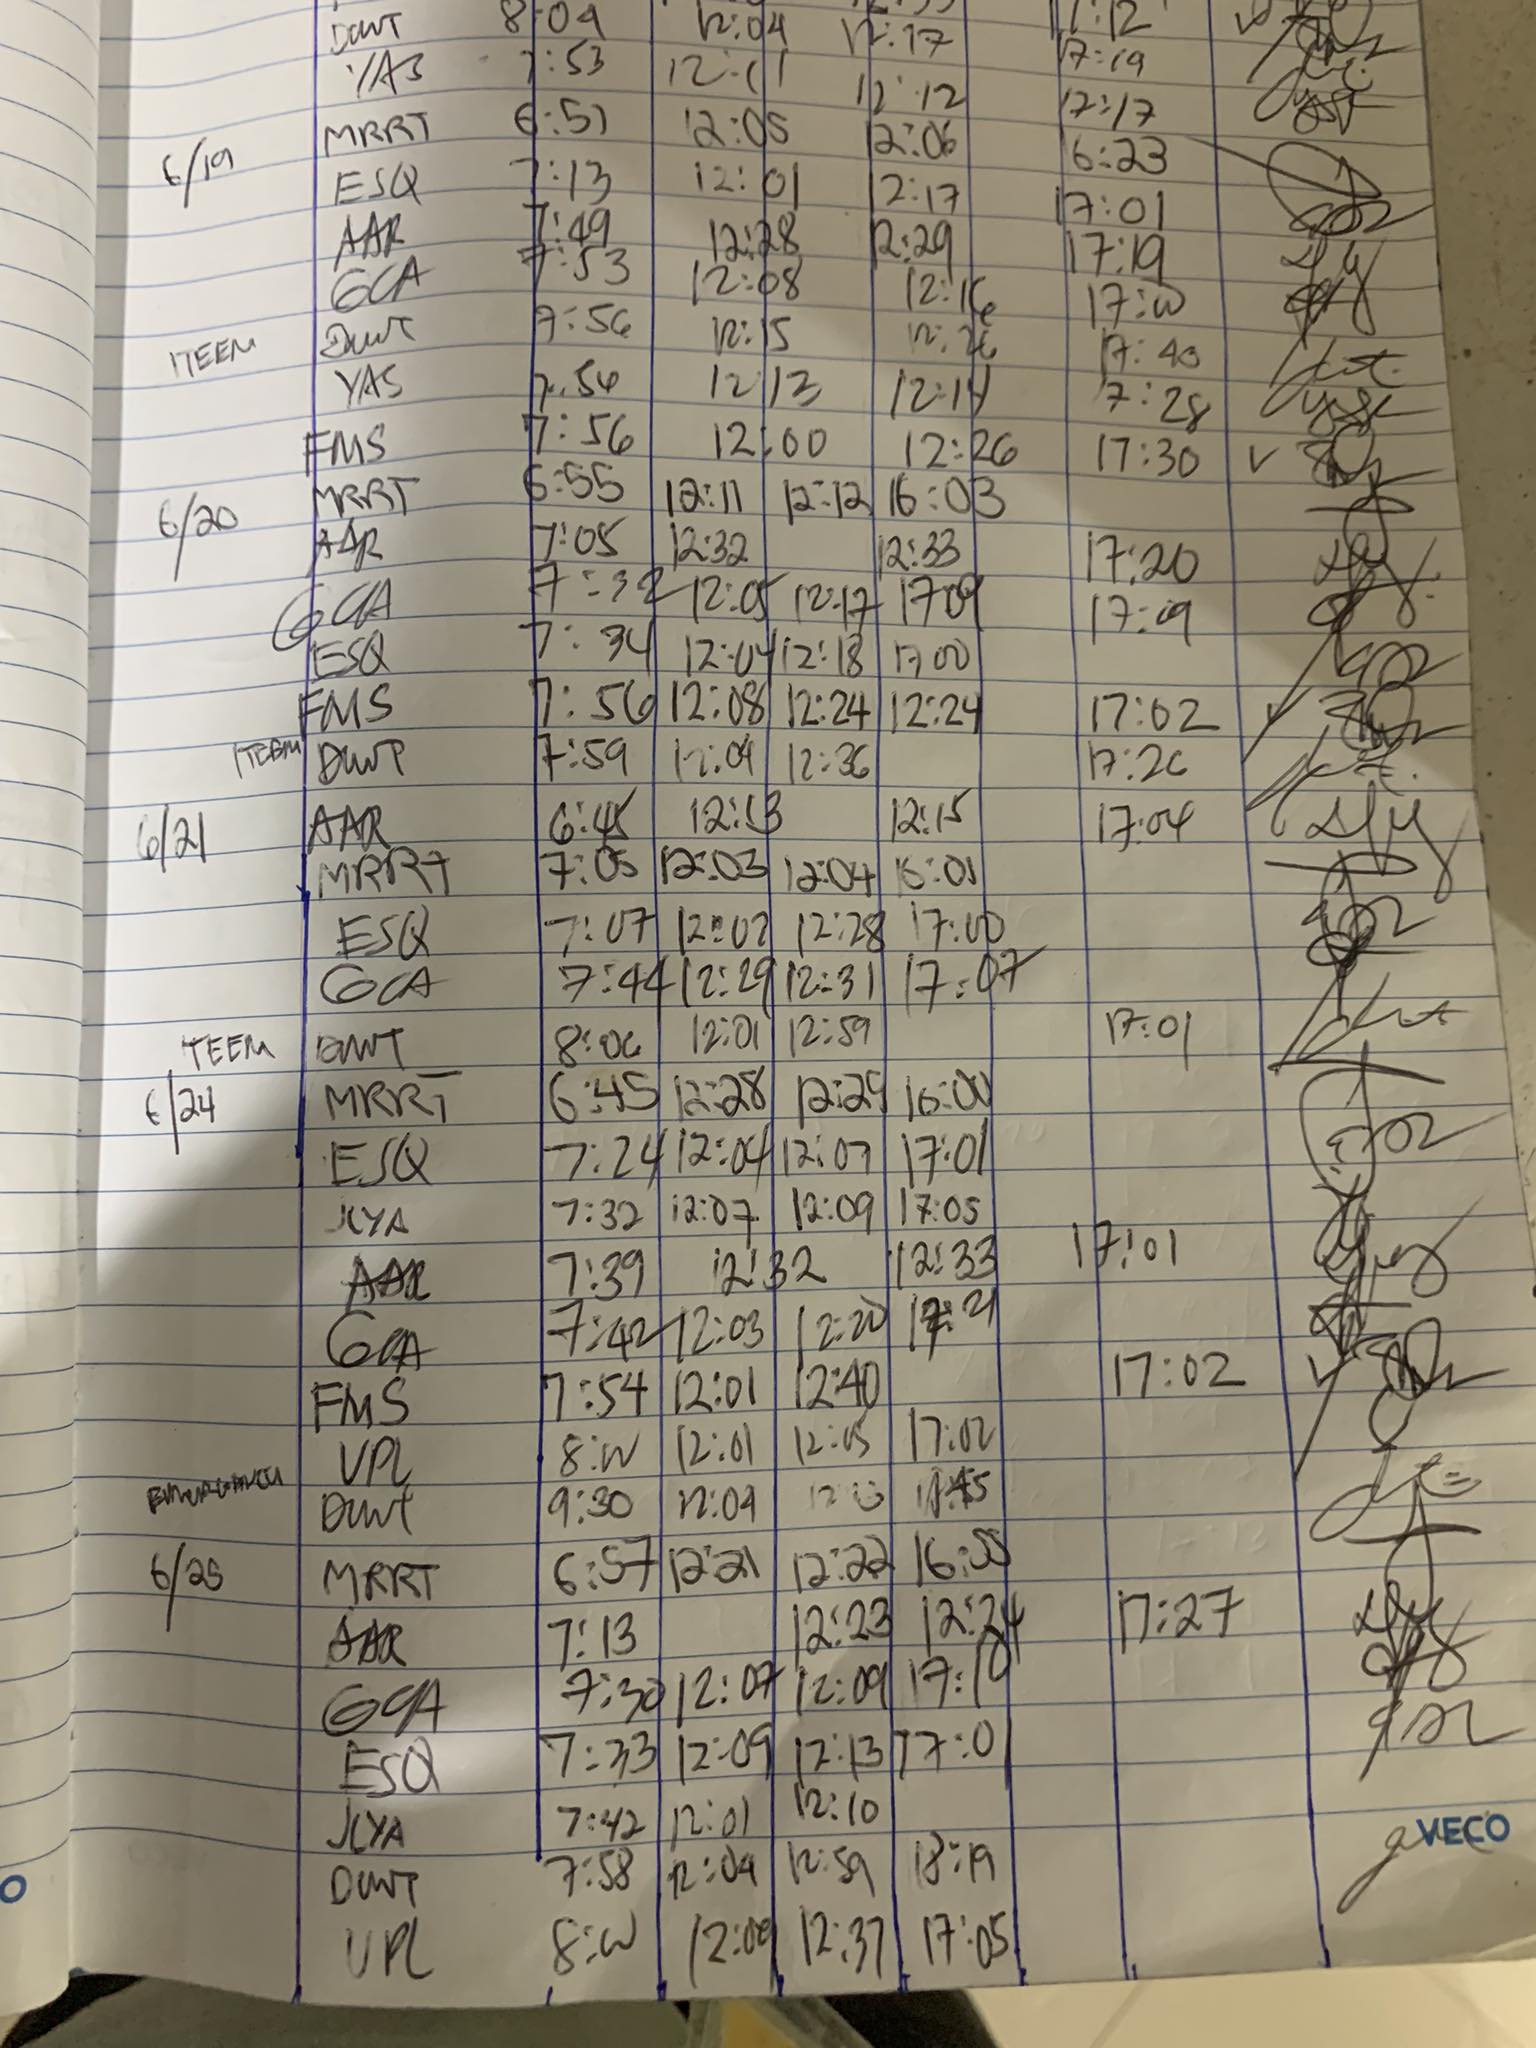 DWT 8:04 12:04 12:17 17:12
YAS 7:53 12:11 12:12 17:19
MRRT 6:51 12:05 12:06 17:17
6/19 ESQ 7:13 12:01 12:17 6:23
AAR 7:49 12:28 12:29 17:01
GCA 7:53 12:08 12:16 17:19
DWT 7:56 12:15 12:26
1TEEM YAS 7:56 12:13 12:14 17:40
FMS 7:56 12:00 12:26 7:28
17:30
6/20 MRRT 6:55 12:11 12:12 16:03
AAR 7:05 12:32 12:33 17:20
GCA 7:32 12:05 12:17 1709 17:09
ESQ 7:34 12:04 12:18 1700
FMS 7:56 12:08 12:24 12:24 17:02
1TEEM DWT 7:59 12:04 12:36 17:26
6/21 AAR 6:45 12:13 12:15 17:04
MRRT 7:05 12:03 12:04 16:01
ESQ 7:07 12:02 12:28 17:00
GCA 7:44 12:29 12:31 17:07
TEEM DWT 8:06 12:01 12:59 17:01
6/24 MRRT 6:45 12:28 12:29 16:00
ESQ 7:24 12:04 12:07 17:01
JCYA 7:32 12:07 12:09 17:05
AAR 7:39 12:32 12:33 17:01
GCA 7:42 12:03 12:20 17:21
FMS 7:54 12:01 12:40 17:02
VPL 12:01 12:05 17:02
DWT 9:30 12:04
6/25 MRRT 6:57 12:21 12:22 16:55
AAR 7:13 12:23 12:24 17:27
GCA 7:30 12:07 12:09 17:10
ESQ 7:33 12:09 12:13 17:01
JCYA 7:42 12:01 12:10
DWT 7:58 12:04 12:59 18:19
VPL 12:09 12:37 17:05
VECO